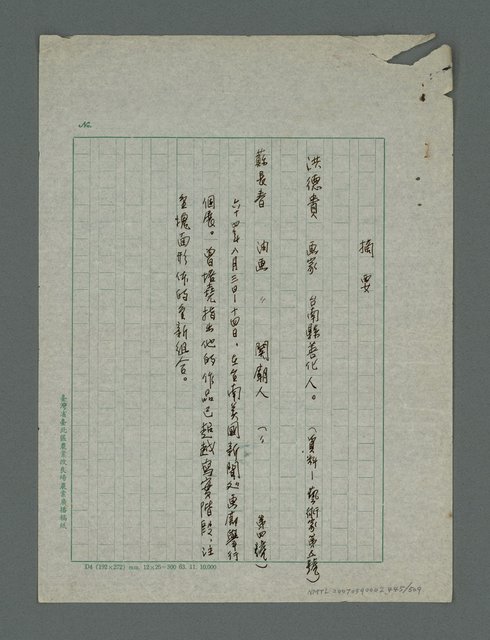 No.
摘要
洪德貴 画家 台南縣善化人。(資料—藝術家第五號)
蘇長春 油画 〃 関廟人 (〃 第四號)
六十四年八月三日—十四日,在台南美國新聞処画廊舉行
個展。曾培堯指出他的作品已超越寫実階段,注
重塊面形体的重新組合。
臺灣省臺北區農業改良場農業廣播稿紙
D4 (192×272) mm. 12×25=300 63. 11. 10,000
NMTL 20070590002 445/509